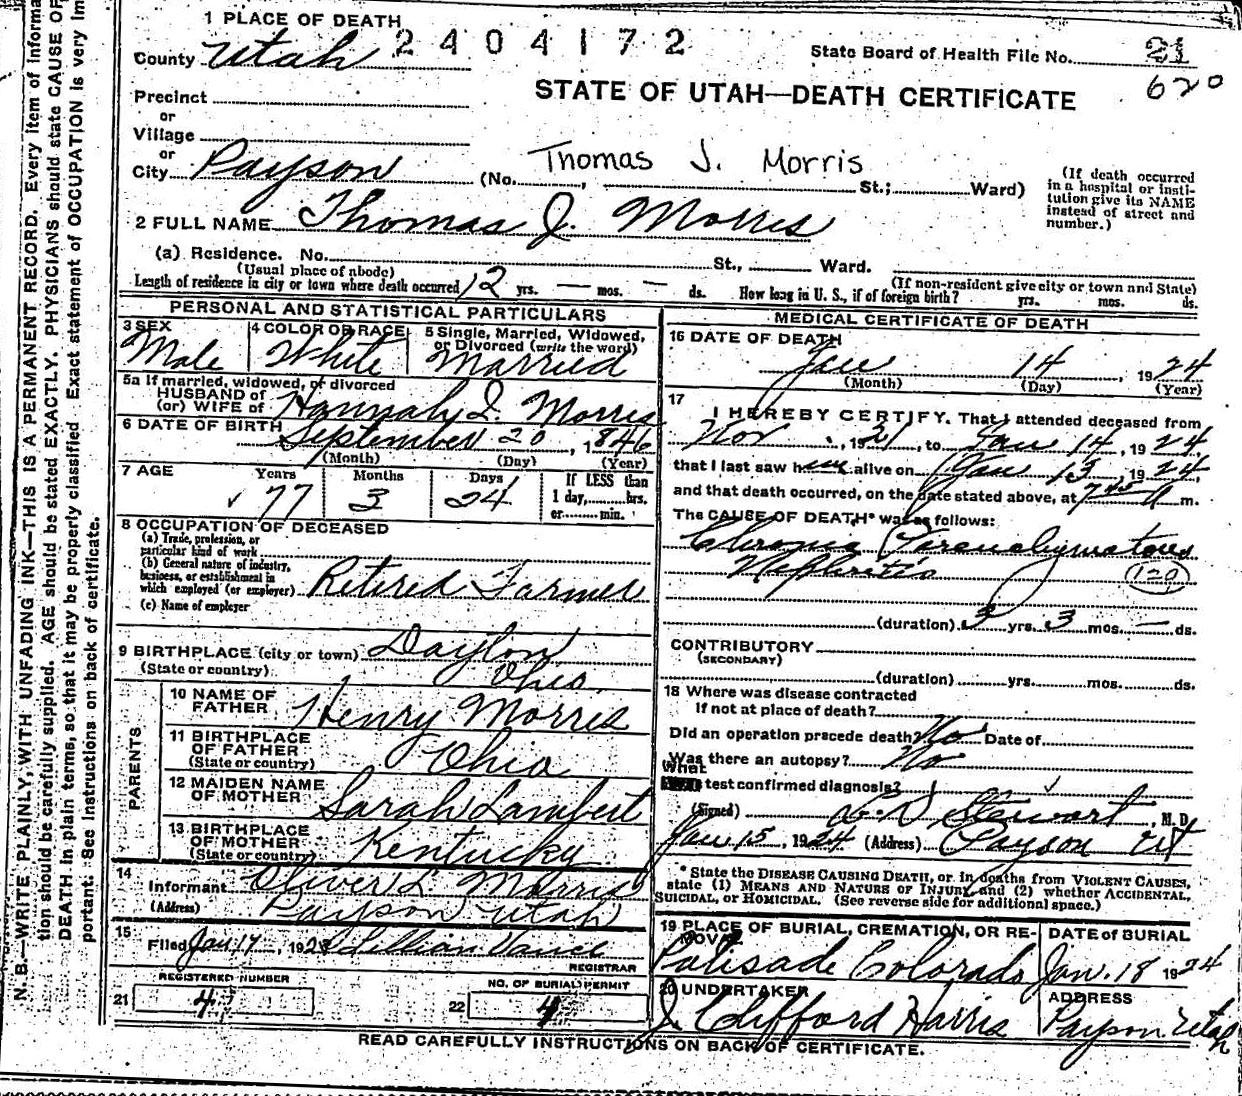 1 PLACE OF DEATH
County Utah 2404172 State Board of Health File No. 21
620
STATE OF UTAH—DEATH CERTIFICATE
Precinct
or
Village
or
City Payson (No. , St.; Ward)
Thomas J. Morris
(If death occurred in a hospital or insti-
tution give its NAME
instead of street and
number.)
2 FULL NAME Thomas J. Morris
(a) Residence. No. St., Ward.
(Usual place of abode) (If non-resident give city or town and State)
Length of residence in city or town where death occurred 12 yrs. — mos. — ds. How long in U. S., if of foreign birth? yrs. mos. ds.
PERSONAL AND STATISTICAL PARTICULARS
3 SEX Male
4 COLOR OR RACE White
5 Single, Married, Widowed,
or Divorced (write the word)
Married
5a If married, widowed, or divorced
HUSBAND of
(or) WIFE of Hannah I. Morris
6 DATE OF BIRTH September 20, 1846
(Month) (Day) (Year)
7 AGE Years Months Days If LESS than
77 3 24 1 day, hrs.
or min.
8 OCCUPATION OF DECEASED
(a) Trade, profession, or
particular kind of work
(b) General nature of industry,
business, or establishment in
which employed (or employer) Retired Farmer
(c) Name of employer
9 BIRTHPLACE (city or town) Dayton
(State or country) Ohio
PARENTS
10 NAME OF
FATHER Henry Morris
11 BIRTHPLACE
OF FATHER
(State or country) Ohio
12 MAIDEN NAME
OF MOTHER Sarah Lambert
13 BIRTHPLACE
OF MOTHER
(State or country) Kentucky
14
Informant Oliver L. Morris
(Address) Payson Utah
15
Filed Jan 17, 192 Lillian Vance
REGISTRAR
REGISTERED NUMBER NO. OF BURIAL PERMIT
21 4 22 4
MEDICAL CERTIFICATE OF DEATH
16 DATE OF DEATH
Jan 14, 1924
(Month) (Day) (Year)
17
I HEREBY CERTIFY. That I attended deceased from
Nov , 1921, to Jan 14, 1924
that I last saw him alive on Jan 13, 1924,
and that death occurred, on the date stated above, at 7 A m.
The CAUSE OF DEATH* was as follows:
Chronic Parenchymatous
Nephritis 120
(duration) 3 yrs. 3 mos. — ds.
CONTRIBUTORY
(SECONDARY)
(duration) yrs. mos. ds.
18 Where was disease contracted
if not at place of death?
Did an operation precede death? No Date of
Was there an autopsy? No
What
test confirmed diagnosis?
(Signed) Stewart, M. D.
Jan 15, 1924 (Address) Payson Ut
* State the DISEASE CAUSING DEATH, or in deaths from VIOLENT CAUSES,
state (1) MEANS AND NATURE OF INJURY, and (2) whether ACCIDENTAL,
SUICIDAL, or HOMICIDAL. (See reverse side for additional space.)
19 PLACE OF BURIAL, CREMATION, OR RE-
MOVAL
Palisade Colorado
DATE of BURIAL
Jan. 18 1924
20 UNDERTAKER
J. Clifford Harris
ADDRESS
Payson Utah
READ CAREFULLY INSTRUCTIONS ON BACK OF CERTIFICATE.
N. B.—WRITE PLAINLY, WITH UNFADING INK—THIS IS A PERMANENT RECORD. Every item of informa-
tion should be carefully supplied. AGE should be stated EXACTLY. PHYSICIANS should state CAUSE OF
DEATH in plain terms, so that it may be properly classified. Exact statement of OCCUPATION is very im-
portant. See instructions on back of certificate.